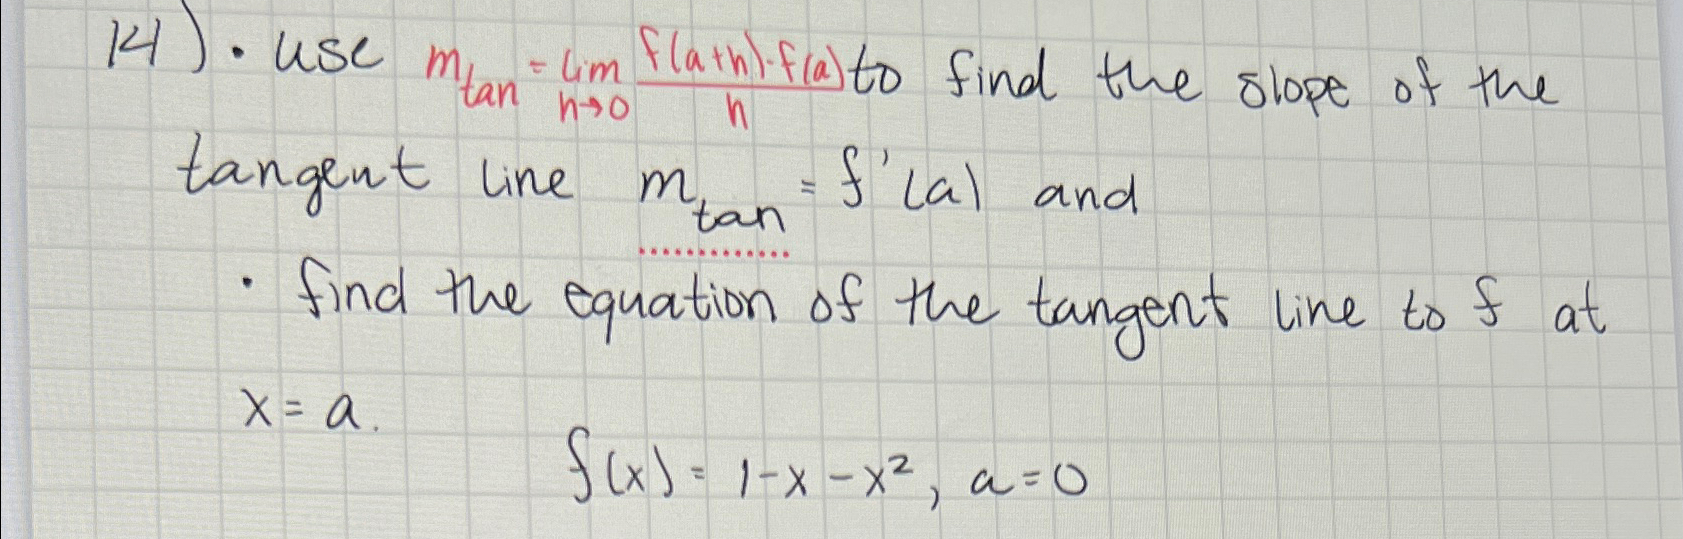 14). • use m_tan = lim_{h→0} (f(a+h)-f(a))/h to find the slope of the
tangent line m_tan = f'(a) and
• find the equation of the tangent line to f at
x = a.
f(x) = 1-x-x², a=0